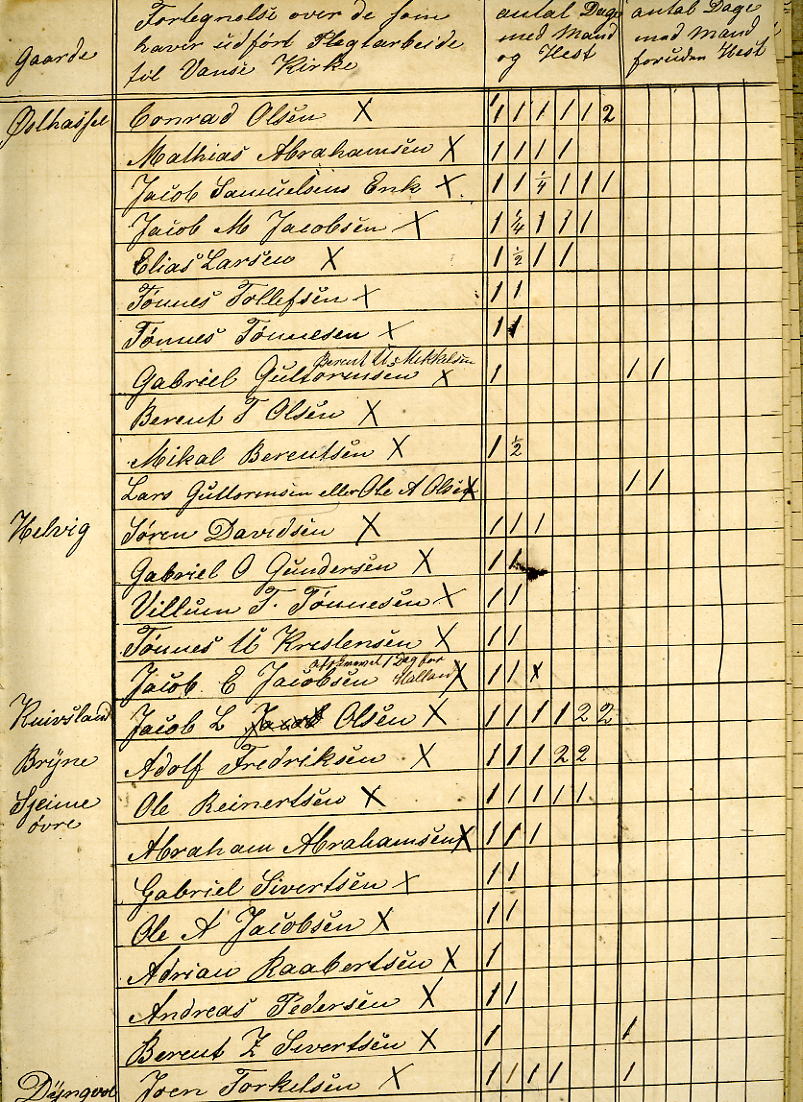 Gaarde
Fortegnelse over de som
haver udført Pligtarbeide
til Vanse Kirke
antal Dage
med Mand
og Hest
antal Dage
med Mand
foruden Hest
Østhassel Conrad Olsen X 1 1 1 1 1 2
Mathias Abrahamsen X 1 1 1 1
Jacob Samuelsens Enk X 1 1 1/4 1 1 1
Jacob M Jacobsen X 1 1/4 1 1 1
Elias Larsen X 1 1/2 1 1
Tønnes Tollefsen X 1 1
Tønnes Tønnesen X 1 1
Berent U. Mikkelsen
Gabriel Guttormsen X 1 1 1
Berent T Olsen X
Mikal Berentsen X 1 1/2
Lars Guttormsen eller Ole A Olsen X 1 1
Helvig Søren Davidsen X 1 1 1
Gabriel O Gundersen X 1 1
Villum T. Tønnesen X 1 1
Tønnes U Kristensen X 1 1
1 Dag for
Jacob E Jacobsen Halland X 1 1 x
Kuivsland Jacob L Olsen X 1 1 1 1 2 2
Brÿne Adolf Fredriksen X 1 1 1 2 2
Sjeime Ole Reinertsen X 1 1 1 1 1
øvre
Abraham Abrahamsen X 1 1 1
Gabriel Sivertsen X 1 1
Ole A Jacobsen X 1 1
Adrian Raabertsen X 1
Andreas Pedersen X 1 1
Berent Z Sivertsen X 1 1
Dÿngvol Joen Torkelsen X 1 1 1 1 1